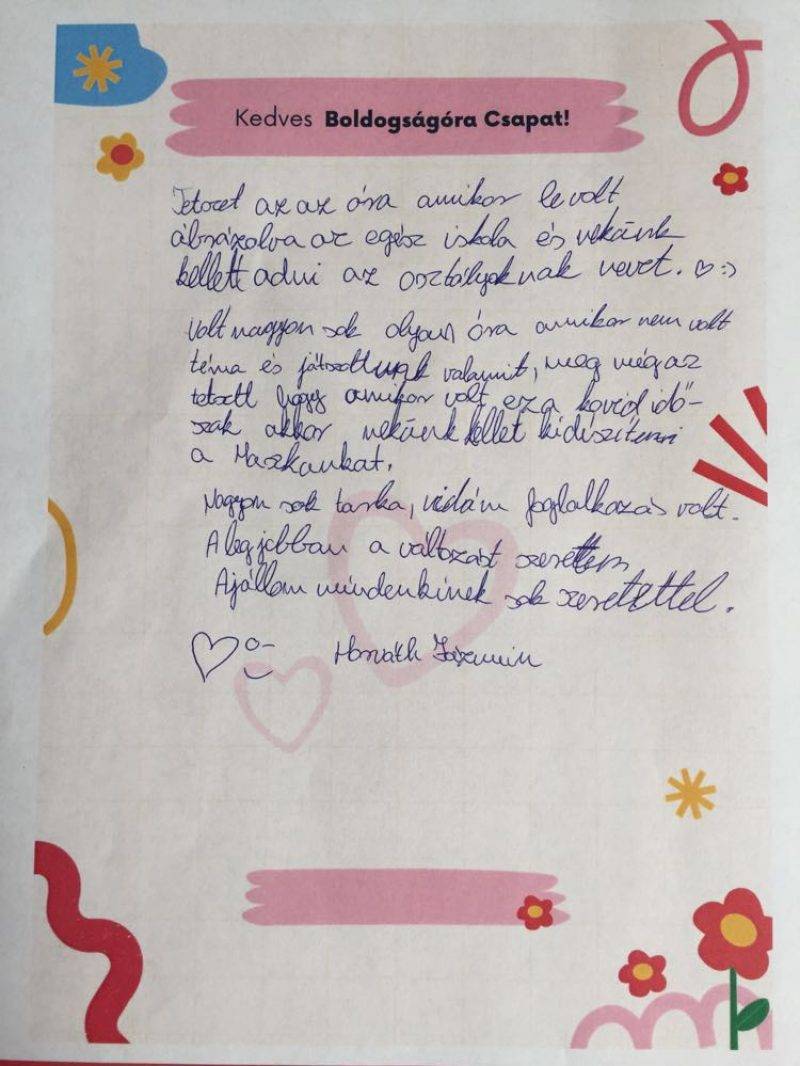 Kedves Boldogságóra Csapat!
Tetszet az az óra amikor levolt
ábrázolva az egész iskola és nekünk
kellett adni az osztályoknak nevet. ♡ :)
Volt nagyon sok olyan óra amikor nem volt
téma és játszottunk valamit, meg még az
tetszett hogy amikor volt ez a kovid idő-
szak akkor nekünk kellet kidíszíteni
a Maszkunkat.
Nagyon sok tarka, vidám foglalkozás volt.
A legjobban a változást szerettem
Ajállom mindenkinek sok szeretettel.
Horváth Jázmin